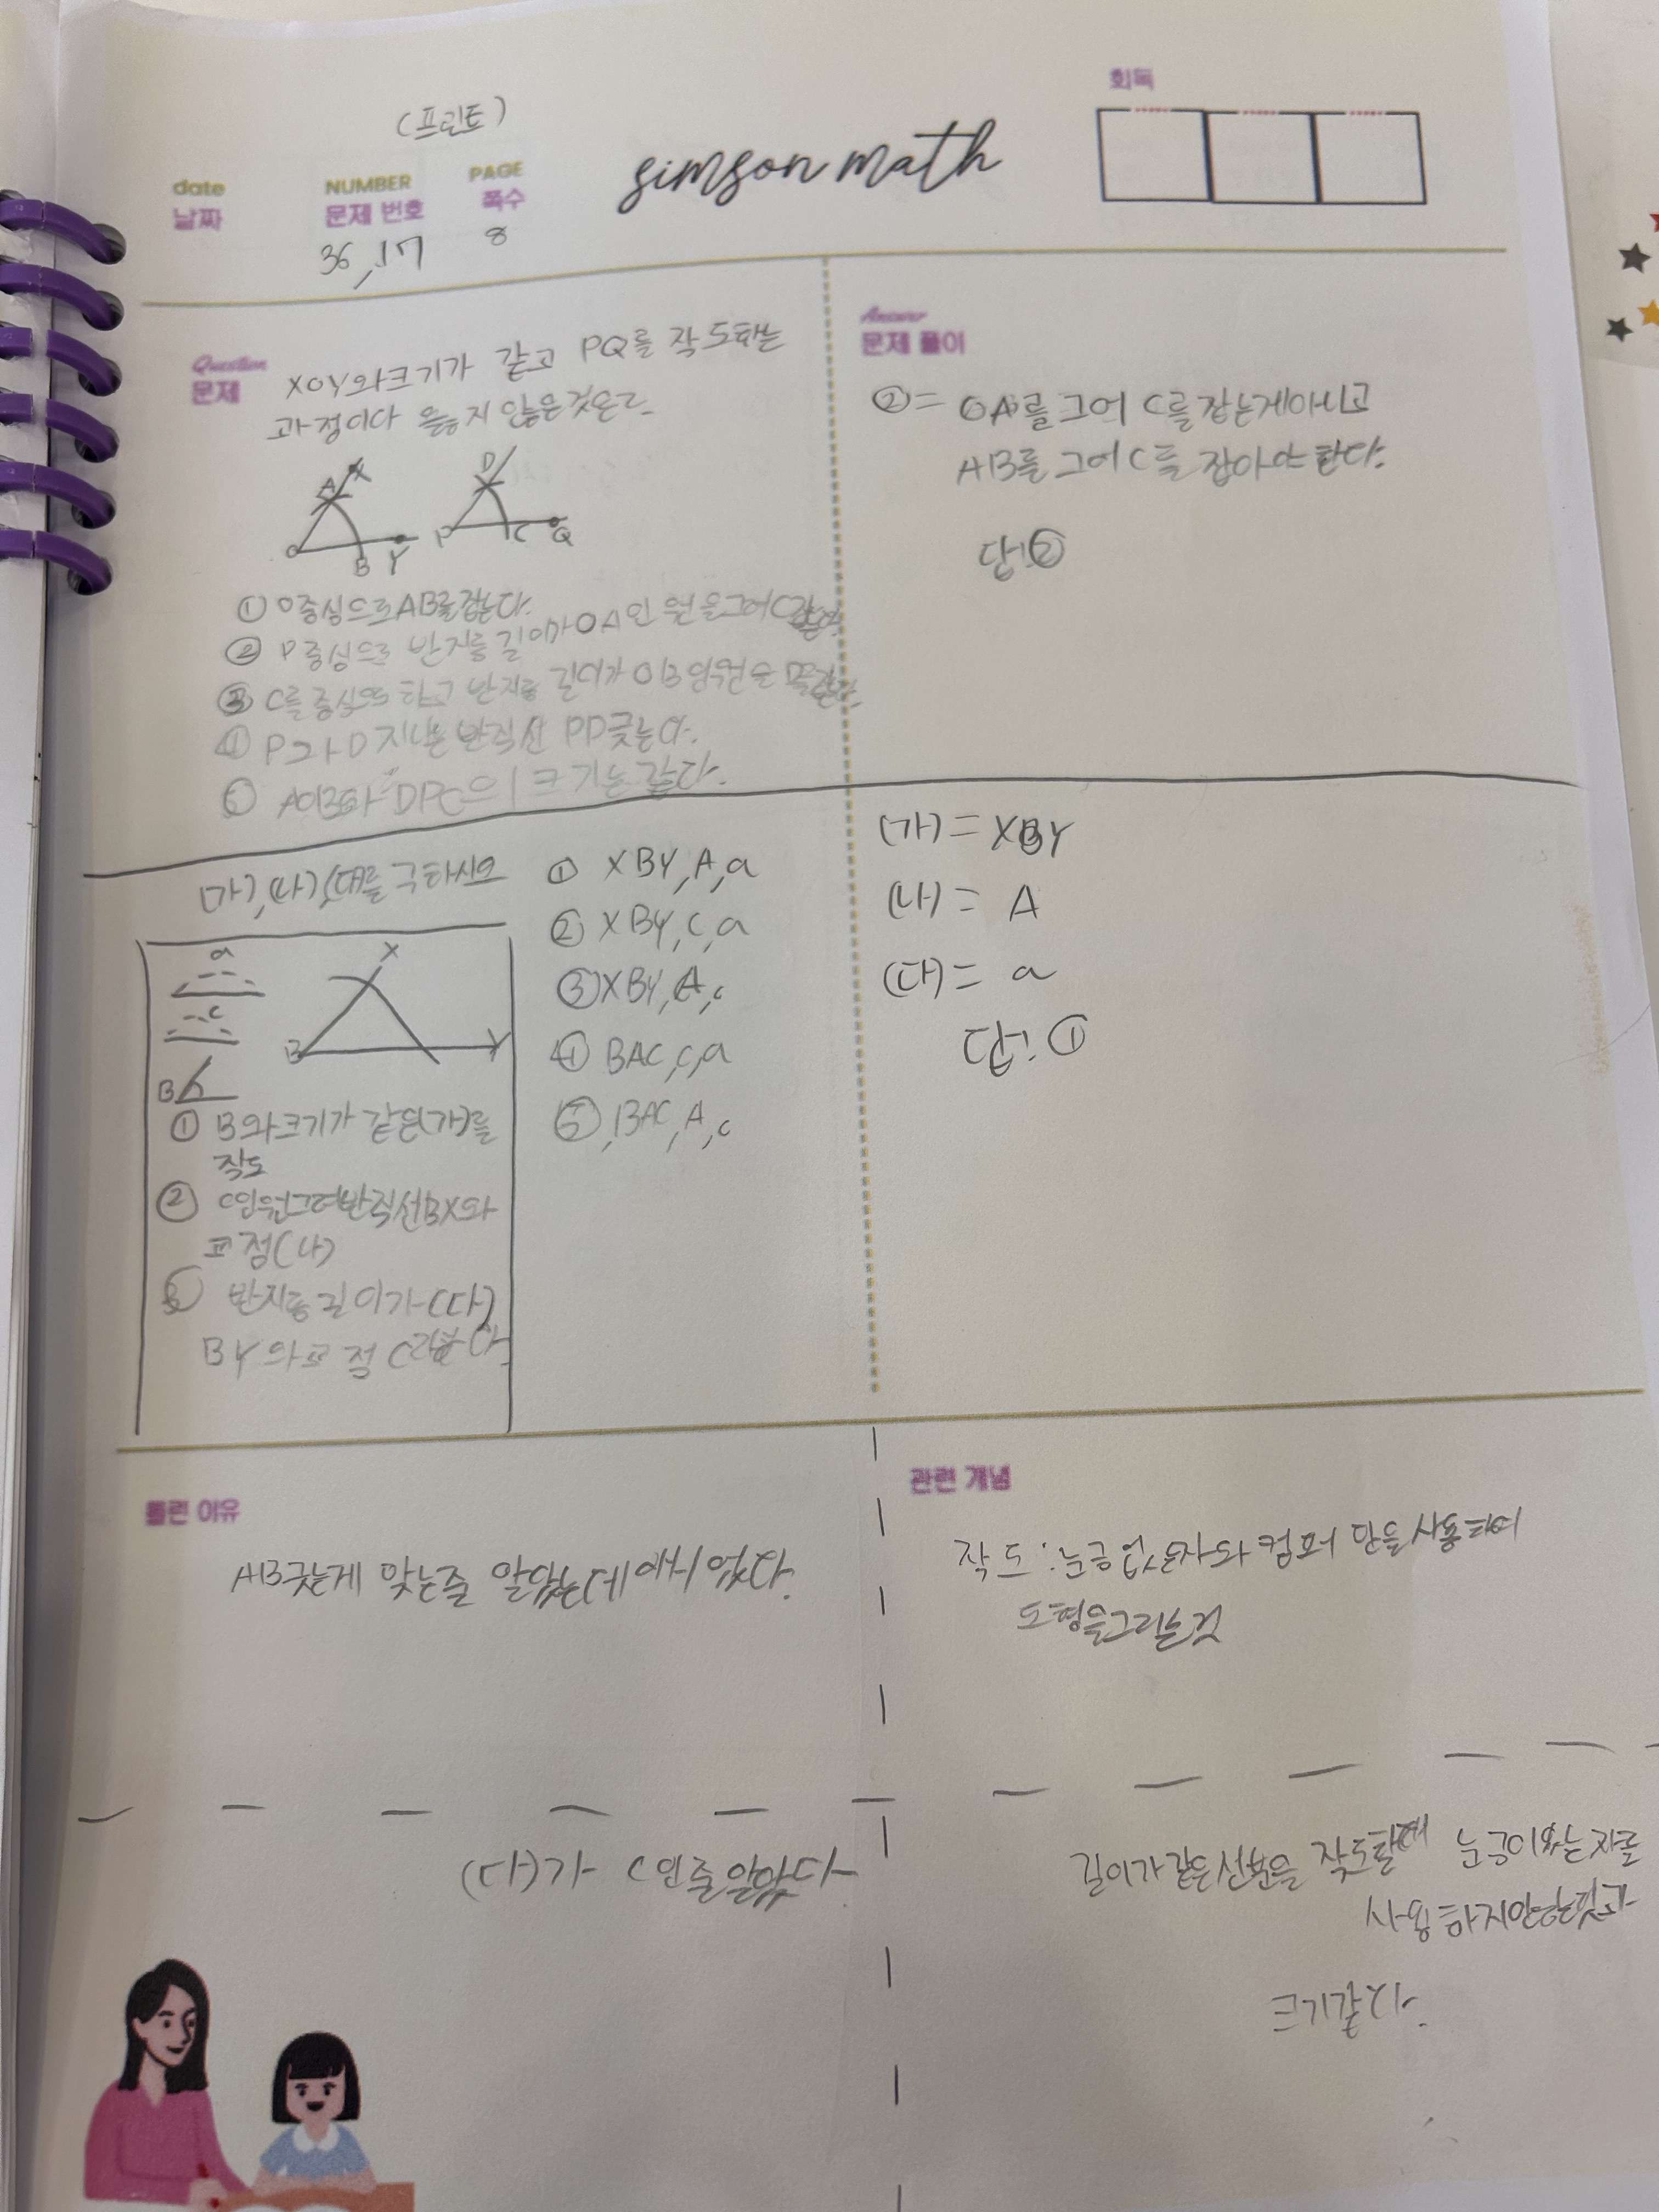 (프린트)
회독
date
날짜
NUMBER
문제 번호
36, 17
PAGE
쪽수
8
simson math
Question
문제
XOY와크기가 같고 PQ를 작도하는
과정이다 옳지 않은것은?
A X
O B Y
D
P C Q
① O중심으로AB를잡는다.
② P중심으로 반지름길이가OA인 원을그어C
③ C를 중심으로 하고 반지름 길이가 OB인원을
④ P와D지나는 반직선 PD긋는다.
⑤ AOB와 DPC의 크기는 같다.
Answer
문제 풀이
②= OA를 그어 C를 잡는게아니고
AB를 그어 C를 잡아야 한다.
답:②
(가),(나),(다)를 구하시오
a
c
B
X
B Y
① B와크기가 같은(가)를
작도
② c인원그려반직선BX와
교점(나)
③ 반지름길이가(다)
BY와교점 C라한다.
① XBY, A, a
② XBY, C, a
③ XBY, A, c
④ BAC, C, a
⑤ BAC, A, c
(가)= XBY
(나)= A
(다)= a
답:①
틀린 이유
AB긋는게 맞는줄 알았는데
관련 개념
작도:눈금없는자와 컴퍼 만을사용하여
도형을그리는것
(다)가 c인줄알았다
길이가같은선분을 작도할때 눈금이있는자를
사용하지
크기같다.